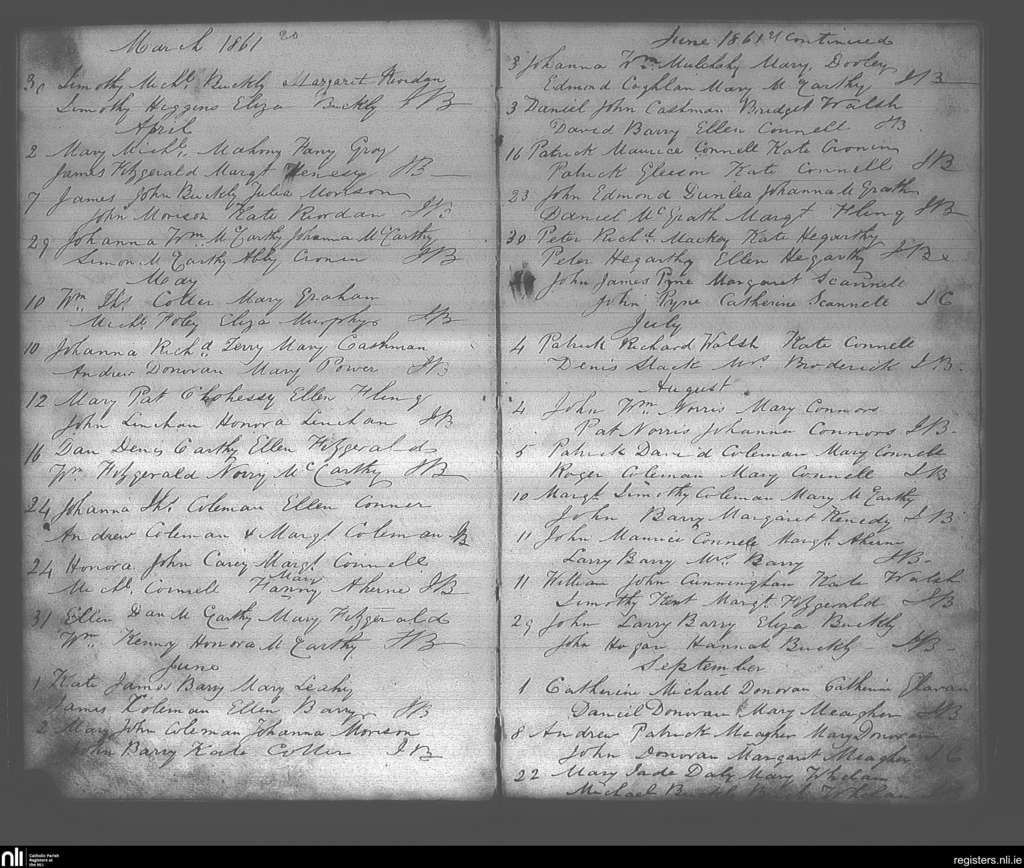 March 1861 20
30 Timothy Michl. Buckly Margaret Riordan
Timothy Higgins Eliza Buckly JB
April
2 Mary Michl. Mahony Fany Gray
James Fitzgerald Margt Henessy JB
7 James John Buckly Julia Morison
John Morison Kate Riordan JB
29 Johanna Wm McCarthy Johanna McCarthy
Simon McCarthy Abby Cronin JB
May
10 Wm Ths. Cotter Mary Graham
Michl. Foley Eliza Murphy JB
10 Johanna Richd Terry Mary Cashman
Andrew Donovan Mary Power JB
12 Mary Pat Clohessy Ellen Fling
John Linehan Honora Linehan JB
16 Dan Denis Carthy Ellen Fitzgerald
Wm Fitzgerald Norry McCarthy JB
24 Johanna Ths. Coleman Ellen Conner
Andrew Coleman & Margt Coleman JB
24 Honora John Carey Margt. Connell
Michl. Connell Mary Fanny Aherne JB
31 Ellen Dan McCarthy Mary Fitzgerald
Wm Kenny Honora McCarthy JB
June
1 Kate James Barry Mary Leahy
James Koleman Ellen Barry JB
2 Mary John Coleman Johanna Morison
John Barry Kate Cotter JB
June 1861 Continued
3 Johanna Wm Mulcahy Mary Dooley
Edmond Coghlan Mary McCarthy JB
3 Daniel John Cashman Bridget Walsh
David Barry Ellen Connell JB
16 Patrick Maurice Connell Kate Cronin
Patrick Glesson Kate Connell JB
23 John Edmond Dunlea Johanna McGrath
Daniel McGrath Margt Fling JB
30 Peter Richd. Mackey Kate Hegarthy
Peter Hegarthy Ellen Hegarthy JB
John James Pyne Margaret Scannell
John Pyne Catherine Scannell J C
July
4 Patrick Richard Walsh Kate Connell
Denis Slack Mrs. Broderick JB.
August
4 John Wm Norris Mary Connors
Pat Norris Johanna Connors JB.
5 Patrick David Coleman Mary Connell
Roger Coleman Mary Connell JB
10 Margt. Timothy Coleman Mary McCarthy
John Barry Margaret Kenedy JB
11 John Maurice Connell Margt. Ahern
Larry Barry Mrs. Barry JB.
11 William John Cunningham Kate Walsh
Timothy Kent Margt. Fitzgerald JB
29 John Larry Barry Eliza Buckly
John Hogan Hannah Buckly JB
September
1 Catherine Michael Donovan Catherine
Daniel Donovan Mary Meagher JB
8 Andrew Patrick Meagher Mary Donovan
John Donovan Margaret Meagher J C
22 Mary Jade Daly Mary Whelan
Michael
nli Catholic Parish Registers at the NLI
registers.nli.ie